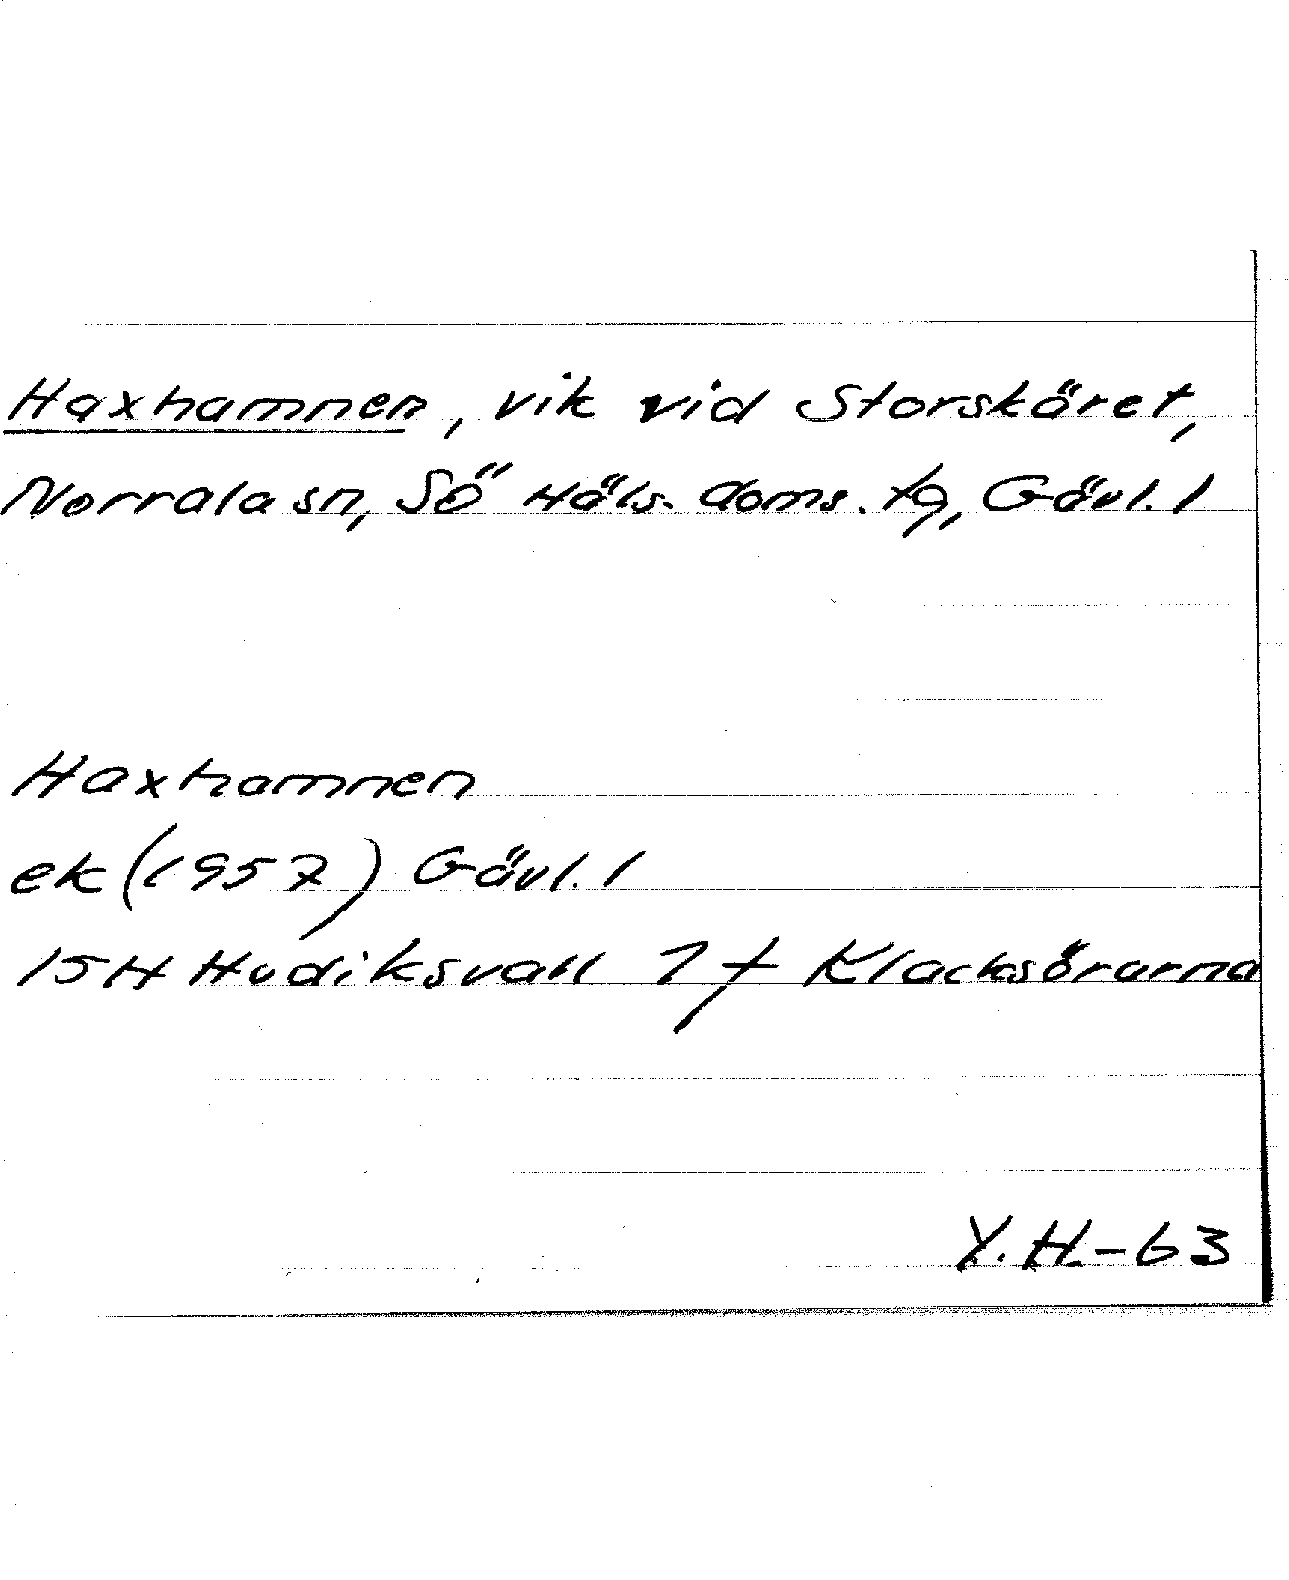 Haxhamnen, vik vid Storskäret,
Norrala sn, Sö Häls. doms. tg, Gävl. l
Haxhamnen
ek (1957) Gävl. l
15H Hudiksvall 7 f Klacksörarna
Y. H. - 63